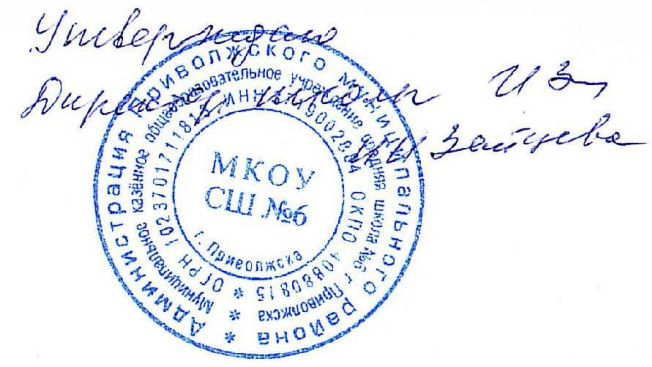 Утверждаю
Директор школы ИЗ
Зайцева
* Администрация Приволжского муниципального района
* Муниципальное казённое общеобразовательное учреждение средняя школа №6 г. Приволжска
* ОГРН ИНН ОКПО 40880815
МКОУ
СШ №6
г. Приволжска